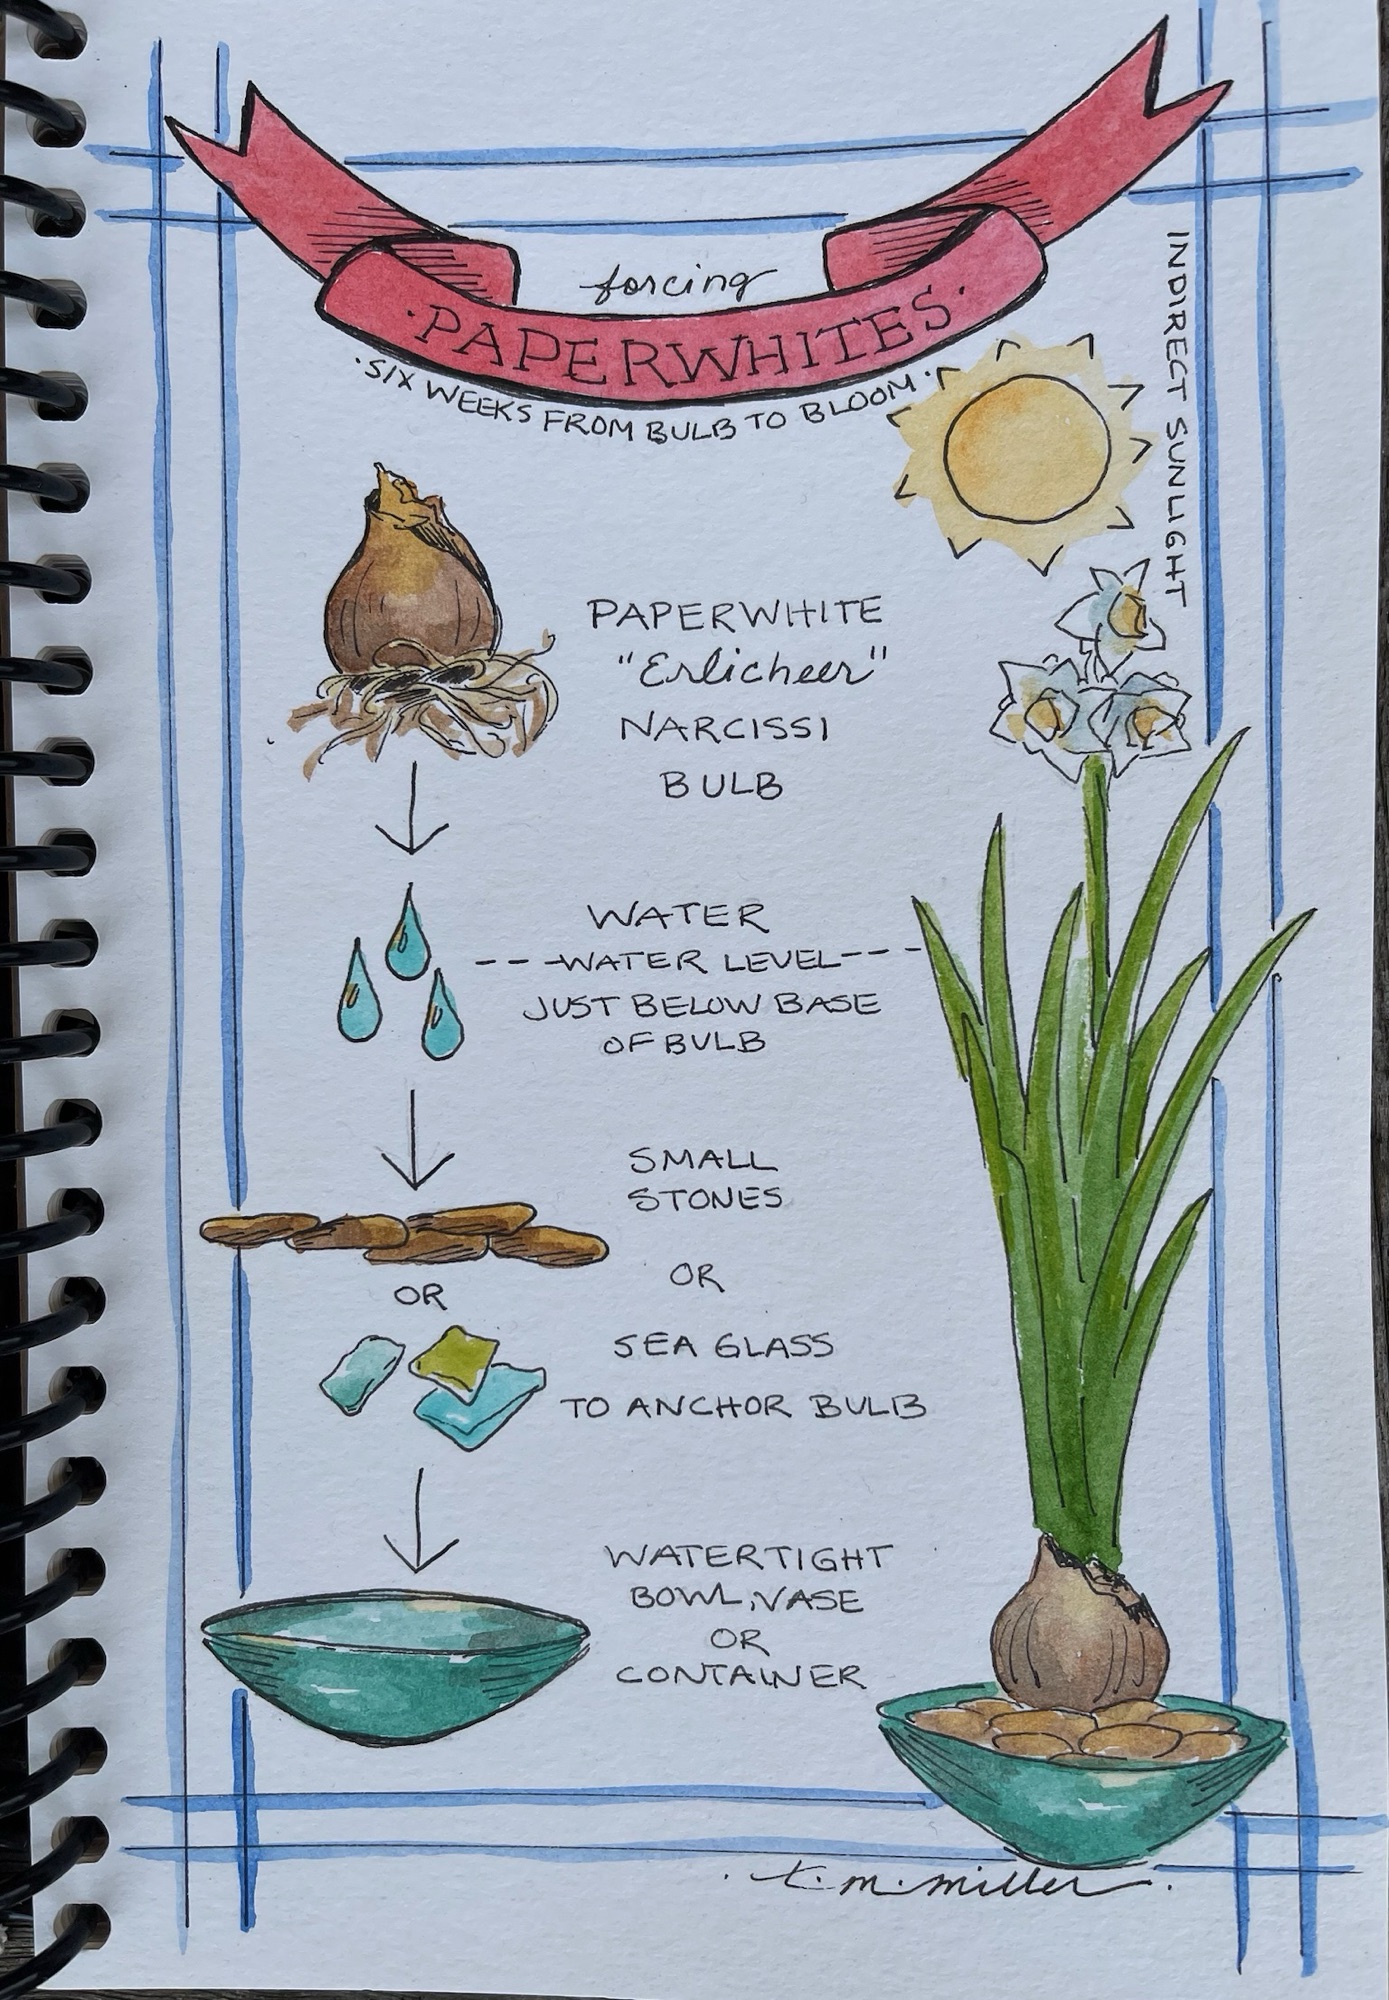 forcing
·PAPERWHITES·
·SIX WEEKS FROM BULB TO BLOOM·
INDIRECT SUNLIGHT
PAPERWHITE
"Erlicheer"
NARCISSI
BULB
WATER
---WATER LEVEL---
JUST BELOW BASE
OF BULB
SMALL
STONES
OR
OR
SEA GLASS
TO ANCHOR BULB
WATERTIGHT
BOWL, VASE
OR
CONTAINER
· t.m.miller ·